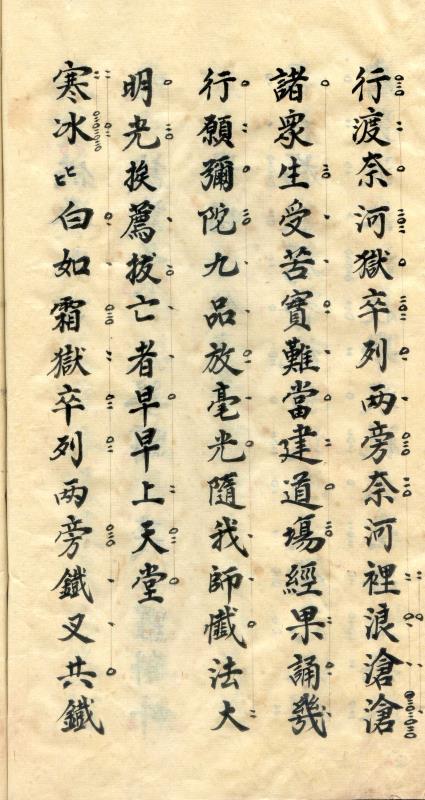 行渡奈河獄卒列兩旁奈河裡浪滄滄
諸衆生受苦實難當建道場經果誦幾
行願彌陀九品放毫光隨我師懺法大
明光挨薦拔亡者早早上天堂
寒冰比白如霜獄卒列兩旁鐵叉共鐵